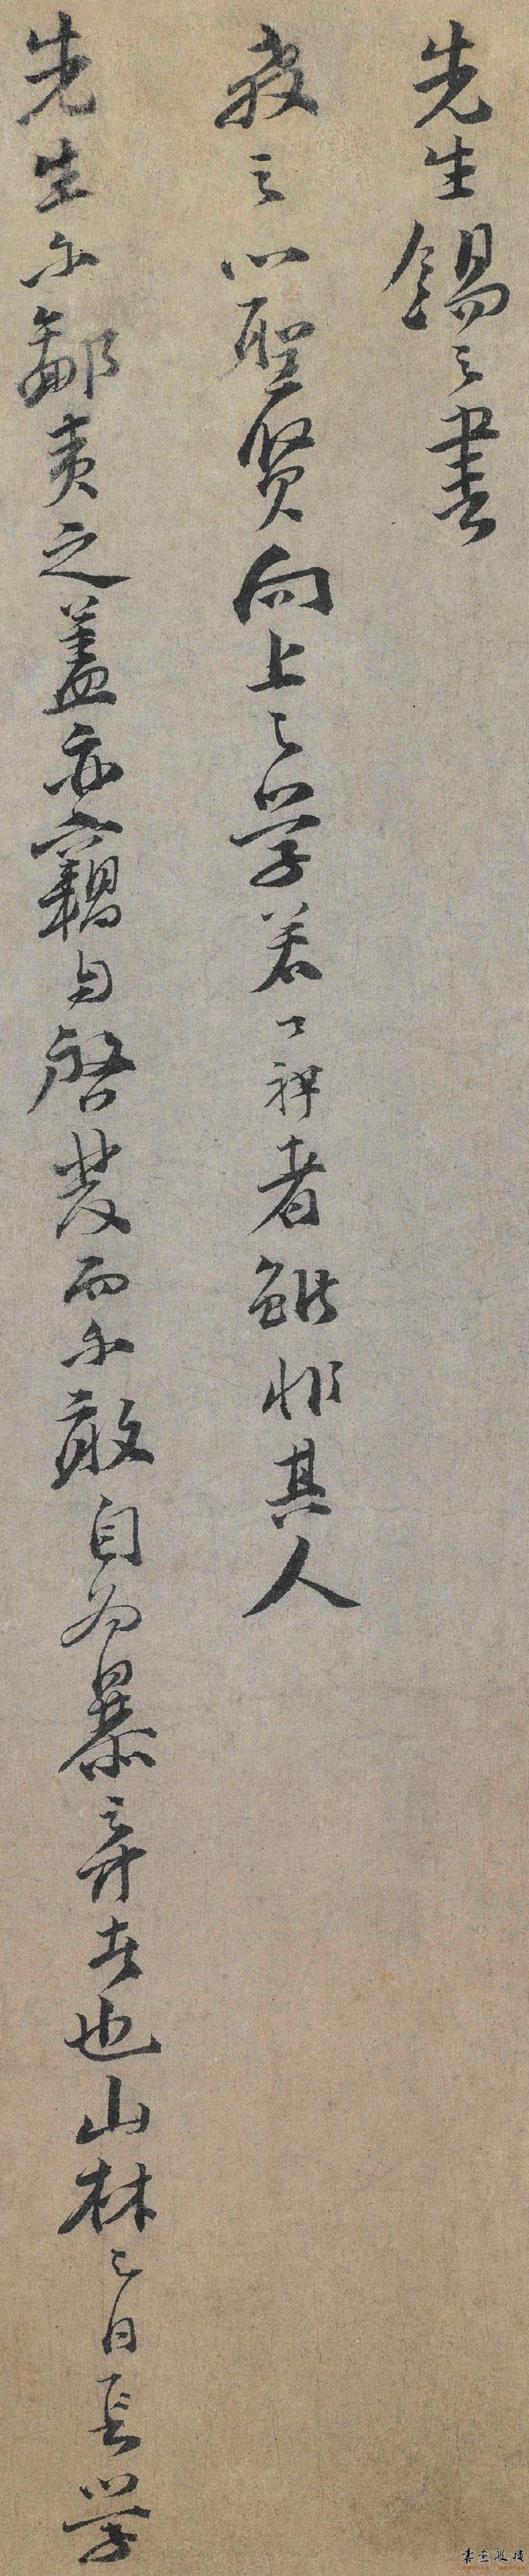 先生錫之書
教之以聖賢向上之學若了禪者雖非其人
先生不鄙夷之蓋亦藉自啓發而不敢自為暴棄者也山林之日長學